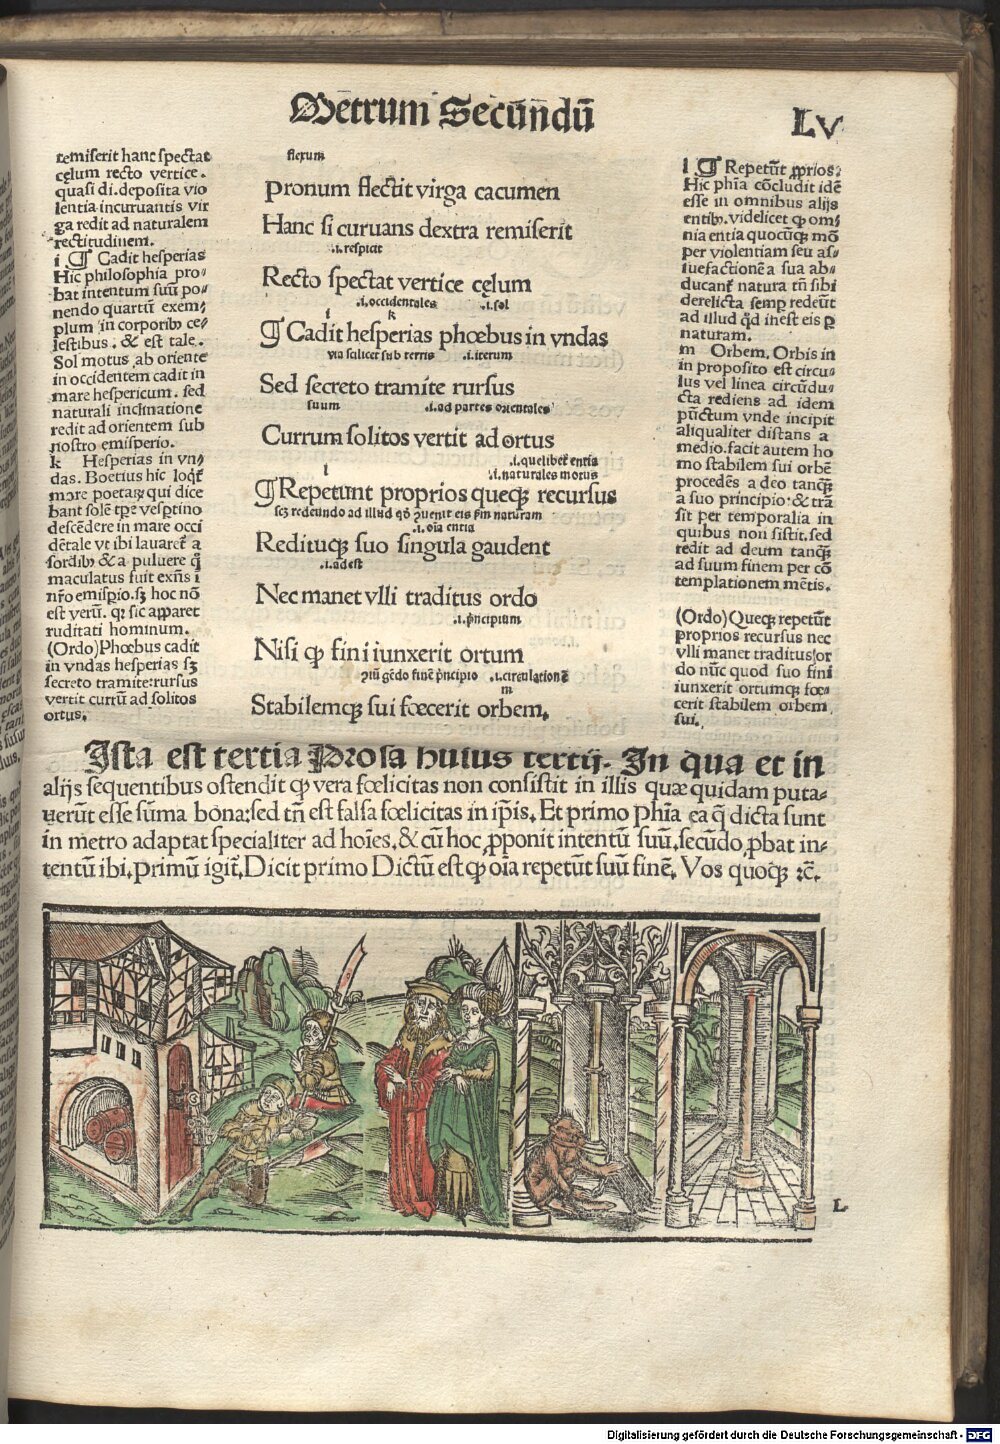 Metrum Secūndū
LV
remiserit hanc spectat
cęlum recto vertice.
quasi di. deposita vio
lentia incuruantis vir
ga redit ad naturalem
rectitudinem.
i ¶ Cadit hesperias
Hic philosophia pro-
bat intentum suū po-
nendo quartū exem-
plum in corporibꝰ ce-
lestibus. & est tale.
Sol motus ab oriente
in occidentem cadit in
mare hespericum. sed
naturali inclinatione
redit ad orientem sub
nostro emisperio.
k Hesperias in vn-
das. Boetius hic loqt̄
mare poetaꝝ qui dice
bant solē tp̄e vesptino
descēdere in mare occi
dētale vt ibi lauaret̄ a
sordibꝰ & a puluere q̄
maculatus fuit exn̄s ī
nr̄o emispio. sꝫ hoc nō
est verū. qꝛ sic apparet
ruditati hominum.
(Ordo) Phœbus cadit
in vndas hesperias sꝫ
secreto tramite: rursus
vertit currū ad solitos
ortus.
flexum
Pronum flectit virga cacumen
Hanc si curuans dextra remiserit
.i. respicit
Recto spectat vertice cęlum
.i. occidentales .i. sol
i k
¶ Cadit hesperias phœbus in vndas
via scilicet sub terris .i. iterum
Sed secreto tramite rursus
suum .i. ad partes orientales
Currum solitos vertit ad ortus
.i. quelibet entia
l .i. naturales motus
¶ Repetunt proprios queqꝫ recursus
scꝫ redeundo ad illud qd̄ ꝯuenit eis p̄m naturam
.i. oīa entia
Redituqꝫ suo singula gaudent
.i. adest
Nec manet vlli traditus ordo
.i. p̄ncipium
Nisi ꝙ fini iunxerit ortum
.i. circulationē
m
Stabilemqꝫ sui fœcerit orbem.
l ¶ Repetūt ꝓprios.
Hic phīa cōcludit idē
esse in omnibus alijs
entibꝰ. videlicet ꝙ om-
nia entia quocūqꝫ mō
per violentiam seu as-
suefactionē a sua ab-
ducant̄ natura tn̄ sibi
derelicta semp redeūt
ad illud qd̄ inest eis ꝑ
naturam.
m Orbem. Orbis in
in proposito est circu-
lus vel linea circūdu-
cta rediens ad idem
pūctum vnde incipit
aliqualiter distans a
medio. facit autem ho
mo stabilem sui orbē
procedēs a deo tanqꝫ
a suo principio: & trā
sit per temporalia in
quibus non sistit. sed
redit ad deum tanqꝫ
ad suum finem per cō
templationem mētis.
(Ordo) Queqꝫ repetūt
proprios recursus nec
vlli manet traditus or
do nūc quod suo fini
iunxerit ortumqꝫ fœ-
cerit stabilem orbem
sui.
Ista est tertia Prosa huius tertij. In qua et in
alijs sequentibus ostendit ꝙ vera fœlicitas non consistit in illis quæ quidam puta-
uerūt esse sūma bona: sed tn̄ est falsa fœlicitas in ip̄is. Et primo phīa ea q̄ dicta sunt
in metro adaptat specialiter ad hoīes. & cū hoc ꝓponit intentū suū. secūdo ꝓbat in-
tentū ibi. Primū igit̄. Dicit primo Dictū est ꝙ oīa repetūt suū finē. Vos quoqꝫ ⁊c̄.
L
Digitalisierung gefördert durch die Deutsche Forschungsgemeinschaft - DFG